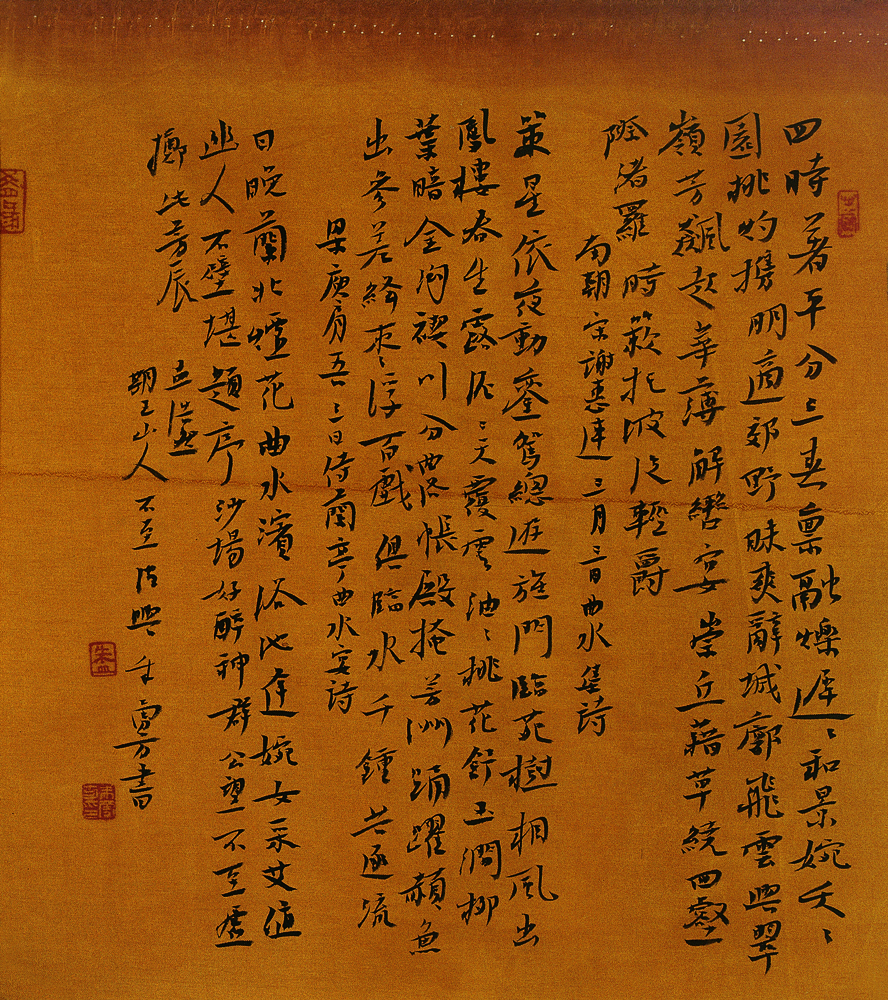 四時著平分三春稟融爍遲〻和景婉夭〻
園桃灼攜朋適郊野昧爽辭城廓飛雲興翠
嶺芳飆起華薄解轡宴崇丘藉草繞回壑
際渚羅時蔌托波泛輕爵
南朝宋謝惠連三月三日曲水集詩
策星依夜動鑾駕總遊旋門臨苑樹相風出
鳳樓春生露泥〻天覆雲油〻桃花舒玉澗柳
葉暗金溝禊川分曲洛帳殿掩芳洲踊躍頳魚
出參差絳棗浮百戲俱臨水千鍾共逐流
梁庾肩吾三日侍蘭亭曲水宴詩
日晚蘭北煙花曲水濱浴池逢婉女采艾值
幽人不壁堪題序沙場好醉神群公望不至虛
擲此芳辰
孟浩然
期王山人不至 書